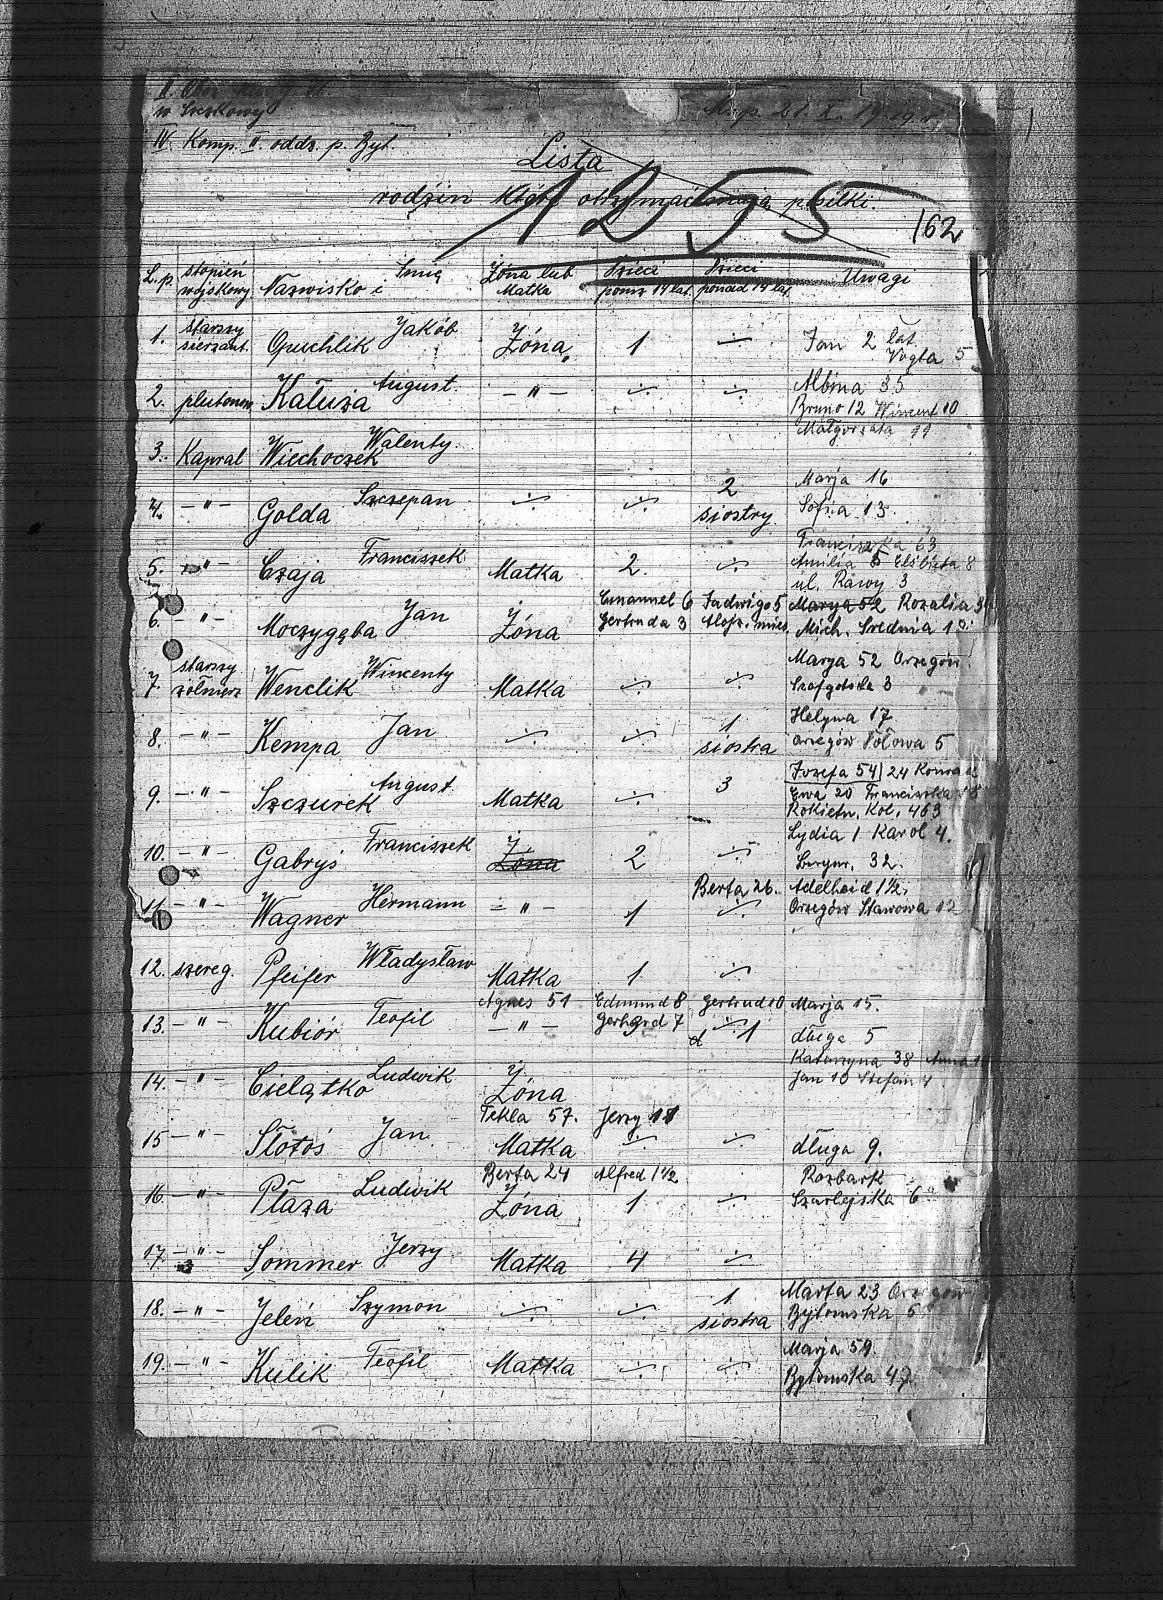 w Szczakowy
IV. Komp. II. oddz. p. Byt.
Lista
rodzin które otrzymać mają posiłki.
1255
162
L.p. stopień wojskowy Nazwisko i Imię Żóna lub Matka Dzieci poniż 14 lat. Dzieci ponad 14 lat. Uwagi
1. starszy sierżant. Jakób Żóna 1 ÷ Jan 2 lat
Vogta 5
2. pluton. Kałuża August — " — ÷ ÷ Albina 35
Bruno 12 Wincent 10
Małgorzata 11
3. Kapral Wiechoczek Walenty
4. — " — Golda Szczepan ÷ ÷ 2 siostry Marja 16
Sofia 13.
Franciszka 63
5. — " — Czaja Franciszek Matka 2. ÷ Amilia 5 Elśbieta 8
ul. Rawy 3
Emanuel 6 Jadwiga 5 Marya 52 Rozalia
6. — " — Moczygęba Jan Żóna Gertruda 3 Mich. Srednia
Marya 52 Orzegów
7. starszy żołnierz Wenclik Wincenty Matka ÷ ÷
8. — " — Kempa Jan ÷ ÷ 1 siostra Helyna 17
Orzegów Polowa 5
Jozefa 54 24 Konrad
9. — " — Szczurek August Matka ÷ 3 Ewa 20 Franciszka 18
Rokietn. Kol. 463
Lydia 1 Karol 4.
10. — " — Gabryś Franciszek Żóna 2 ÷ 32.
Berta 26. Adelheid 1½
11. — " — Wagner Hermann — " — 1 ÷ Orzegów Stawowa 12
12. szereg. Pfeifer Władysław Matka 1. ÷
Agnes 51 Edmund 8 Gertrud 10 Marja 15.
13. — " — Kubiór Teofil — " — Gerhard 7 1 długa 5
Katarzyna 38 Anna
14. — " — Cielątko Ludwik Żóna Jan 10 Stefan 4
Tekla 57. Jerzy 11
15 — " — Słotoś Jan Matka ÷ ÷ długa 9.
Berta 24 Alfred 1½ Rozbark
16. — " — Płaza Ludwik Żóna 1. ÷ Szarlejska 6
17. — " — Sommer Jerzy Matka 4 ÷
18. — " — Jeleń Szymon ÷ ÷ 1 siostra Marta 23 Orzegów
Bytomska 5
Marja 59.
19. — " — Kulik Teofil Matka ÷ ÷ Bytomska 47